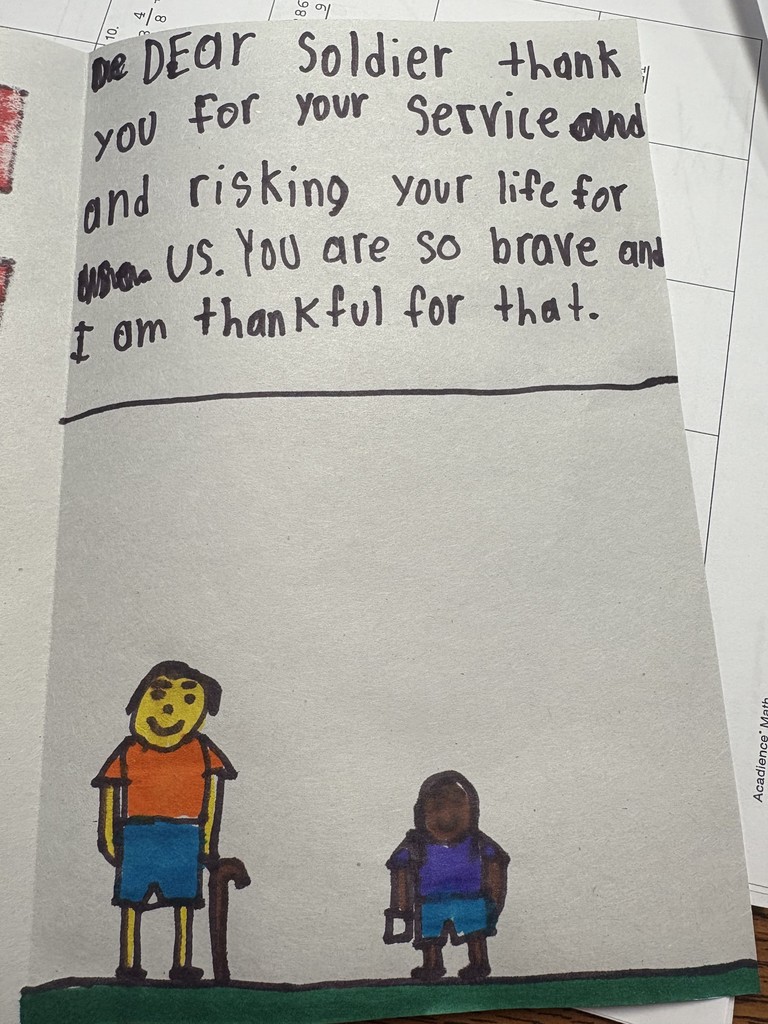 10.
4
8
3
86
9
De DEar Soldier thank
you for your service and
and risking your life for
us. You are so brave and
I am thankful for that.
Acadience® Math